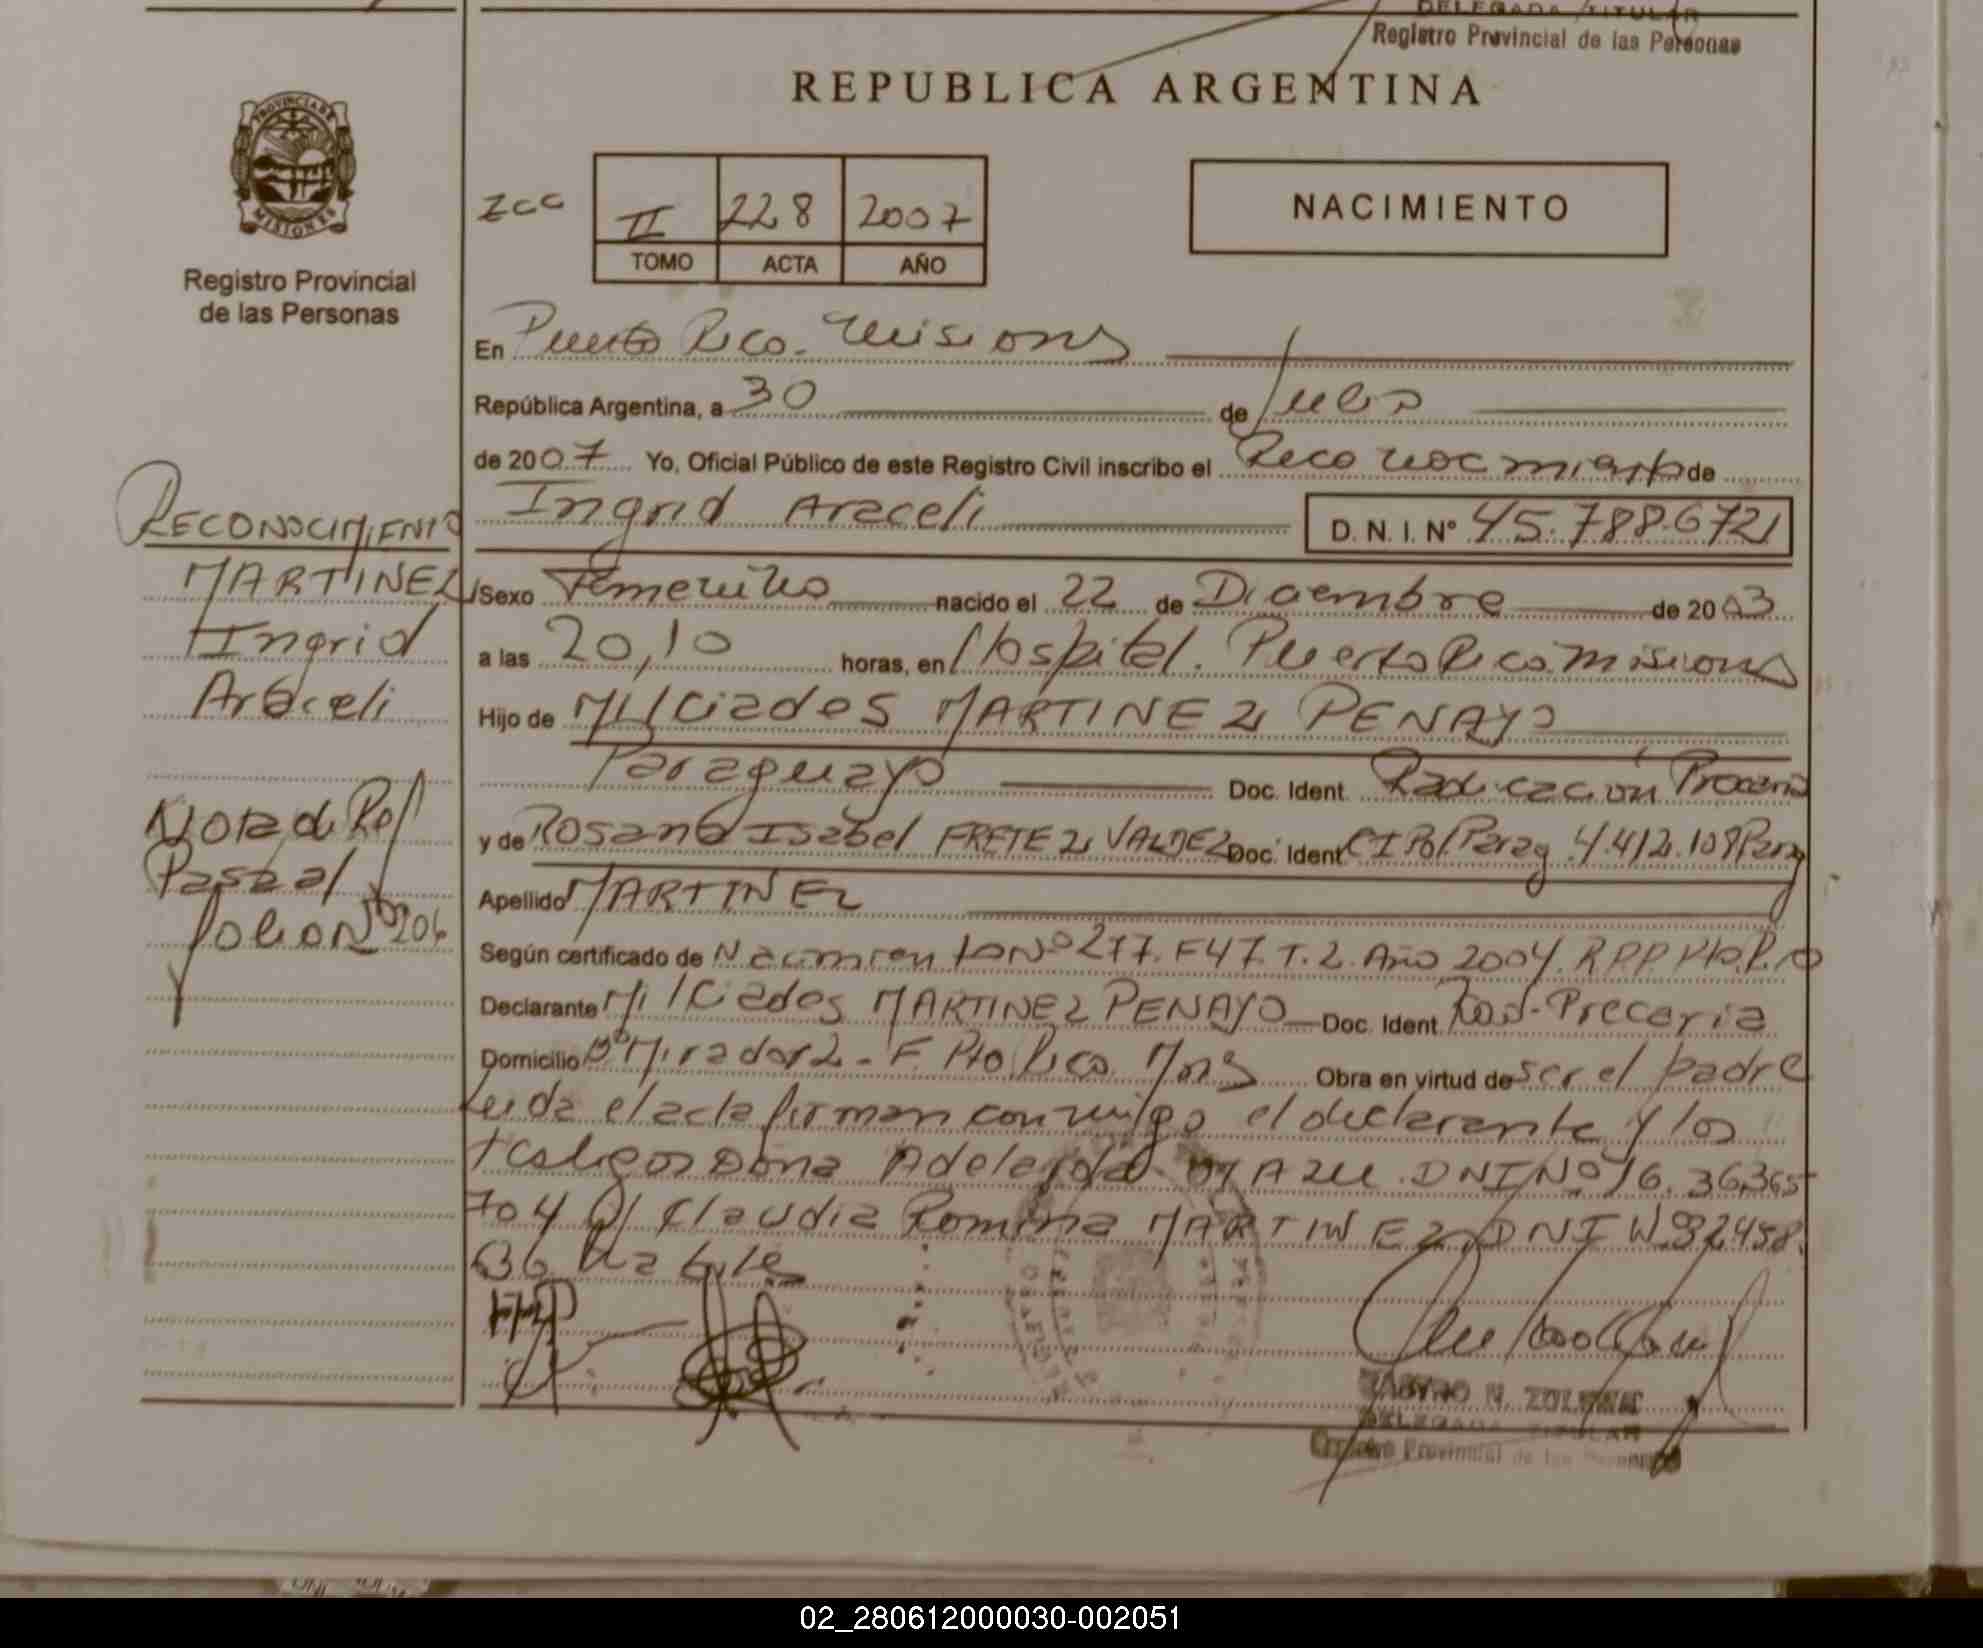 DELEGADA TITULAR
Registro Provincial de las Personas
REPUBLICA ARGENTINA
PROVINCIA DE
MISIONES
Registro Provincial
de las Personas
II 228 2007
TOMO ACTA AÑO
NACIMIENTO
En Puerto Rico - Misiones
República Argentina, a 30 de Julio
de 2007 Yo, Oficial Público de este Registro Civil inscribo el Reconocimiento de
Ingrid Araceli D. N. I. Nº 45.788.672
Sexo Femenino nacido el 22 de Diciembre de 2003
a las 20,10 horas, en Hospital. Puerto Rico. Misiones
Hijo de Milciades MARTINEZ PENAYO
Paraguayo Doc. Ident. Radicación Precaria
y de Rosana Isabel FRETEZ VALDEZ Doc. Ident. CI Pol Parag 4.412.108 Parag
Apellido MARTINEZ
Según certificado de Nacimiento Nº 277. F 47. T. 2. Año 2004. R.P.P. Pto. Rico
Declarante Milciades MARTINEZ PENAYO Doc. Ident. Rad. Precaria
Domicilio Bº Mirador 2 - F. Pto Rico. Mnes Obra en virtud de ser el padre
Leida el acta firman conmigo el declarante y los
testigos Doña Adelaida DNI Nº 16.
704 Claudia Romina MARTINEZ DNI Nº 32.458.
636
RECONOCIMIENTO
MARTINEZ
Ingrid
Araceli
Nota de Ref
Pasa al
folio Nº 206
DELEGADA TITULAR
Registro Provincial de las Personas
02_280612000030-002051